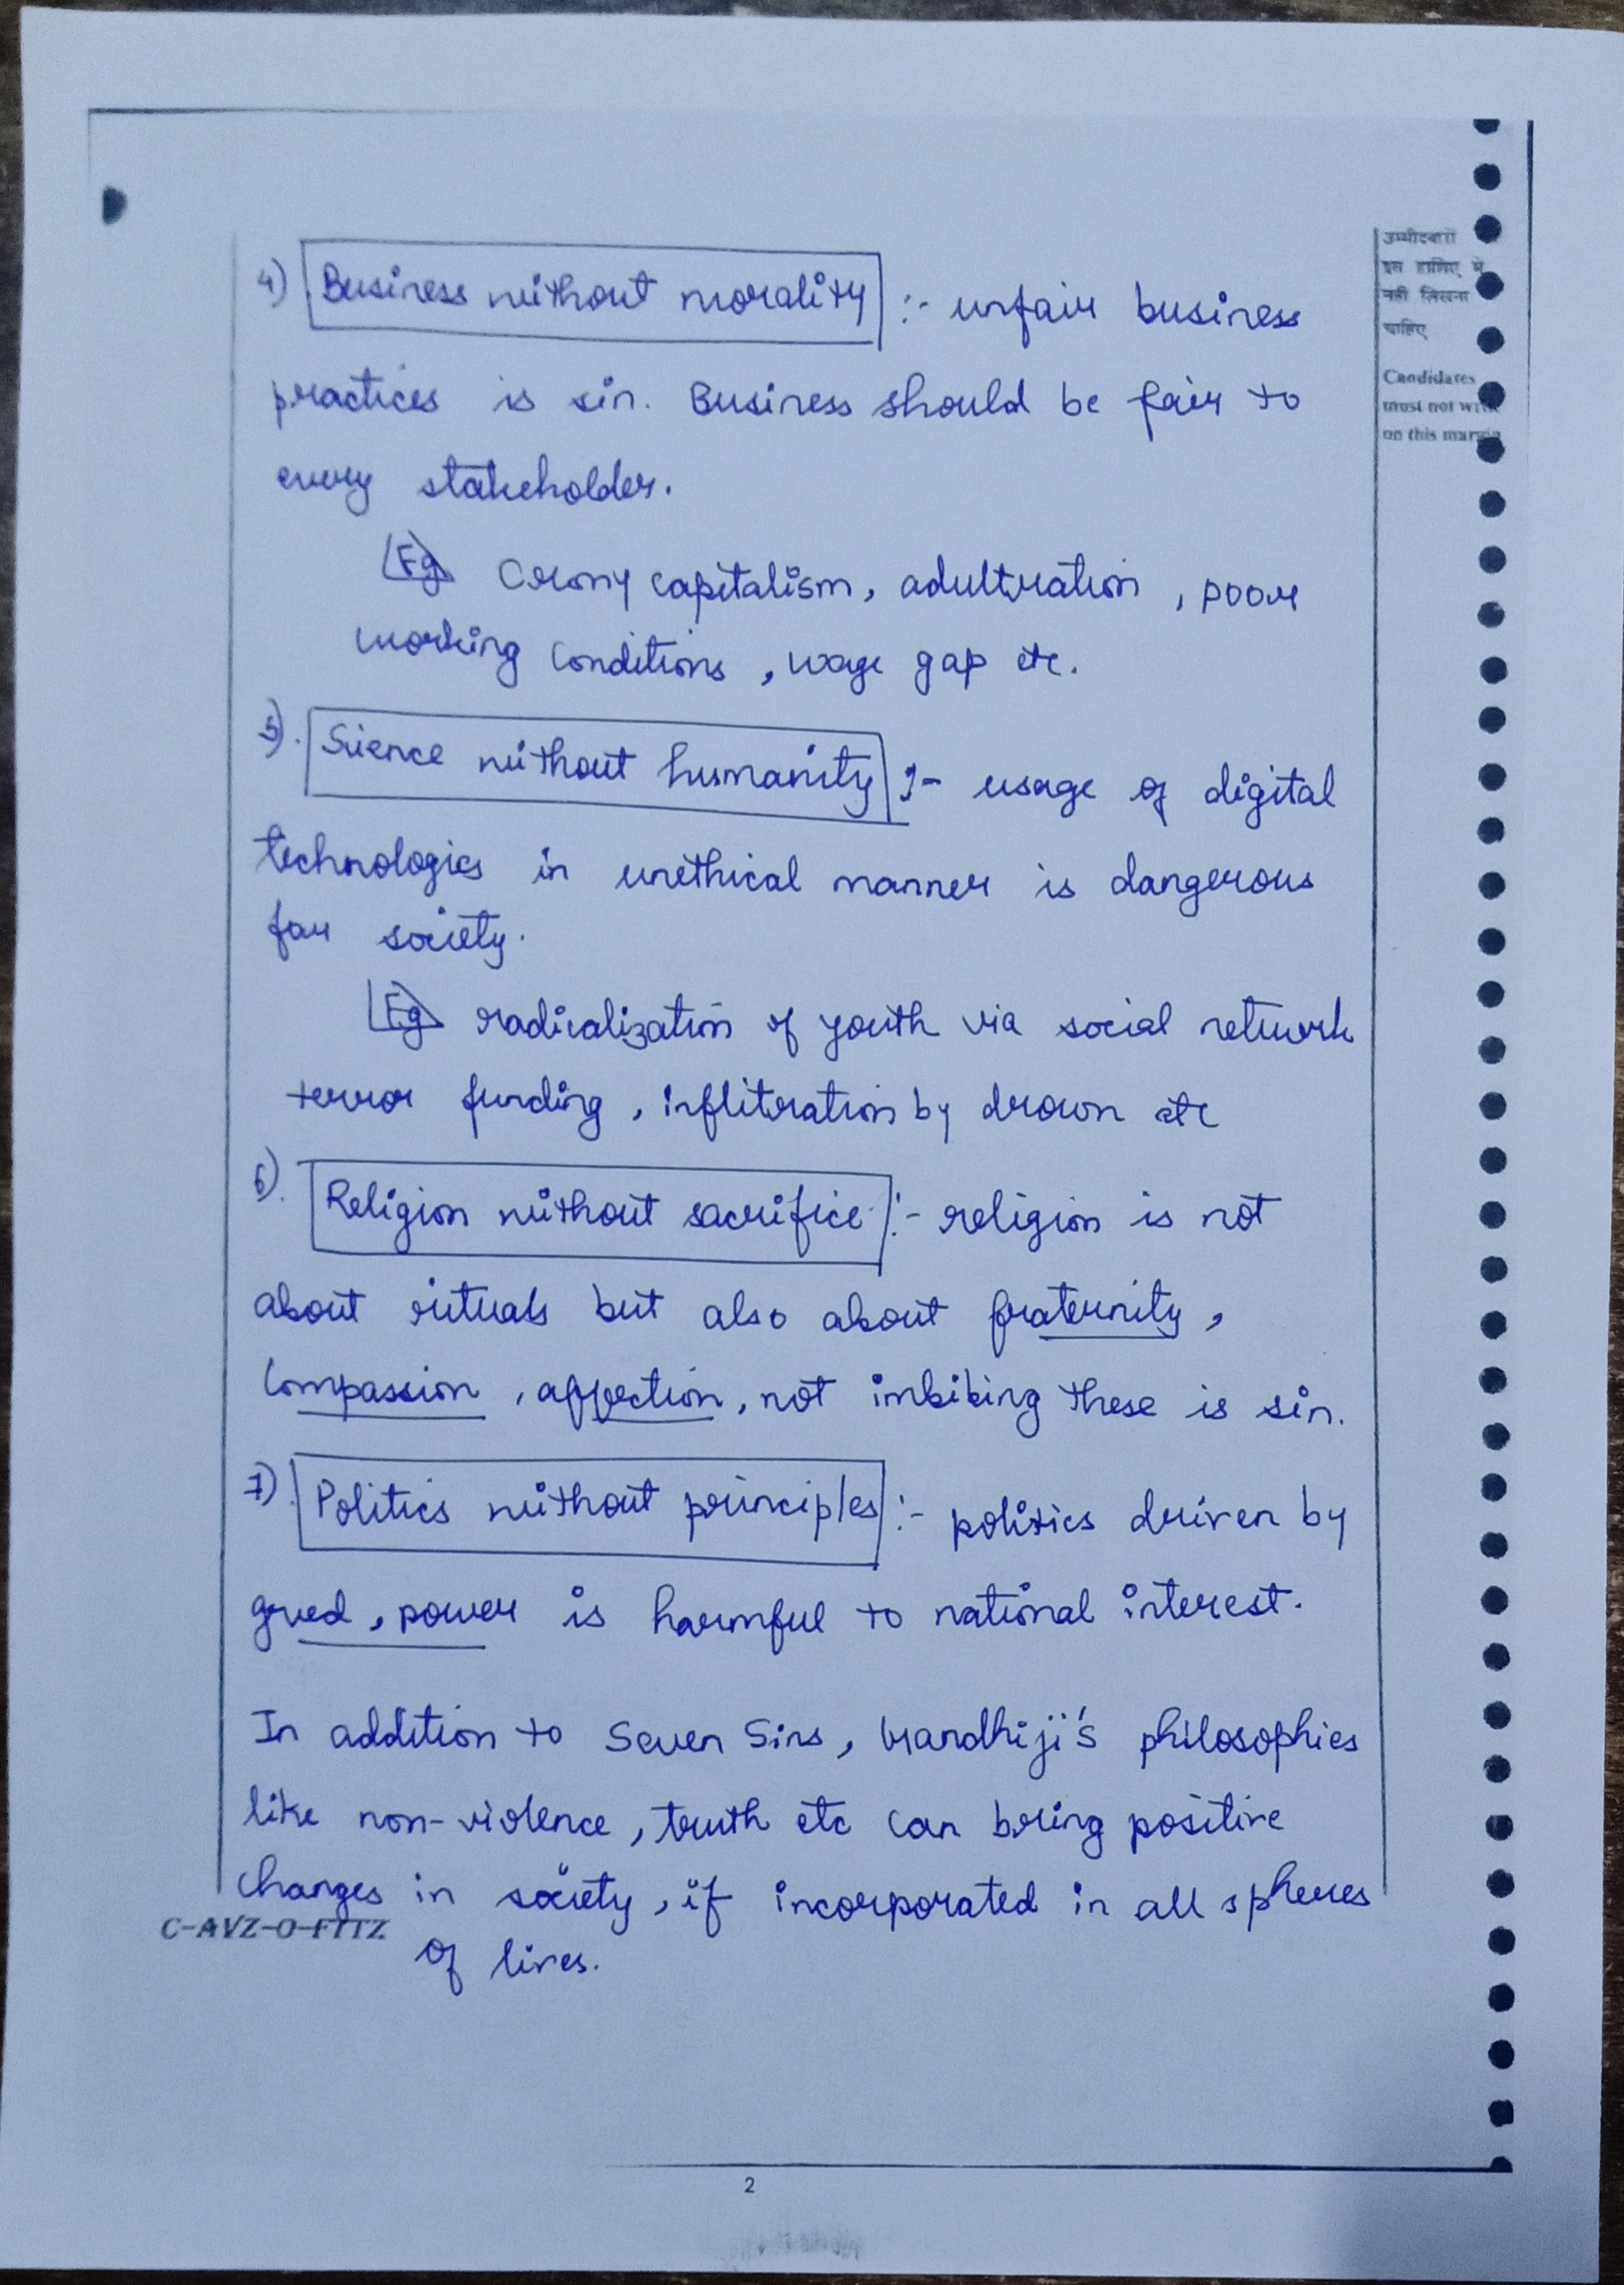 4) Business without morality :- unfair business
practices is sin. Business should be fair to
every stakeholder.
Eg Crony capitalism, adultration, poor
working conditions, wage gap etc.
5). Science without humanity :- usage of digital
technologies in unethical manner is dangerous
for society.
Eg radicalization of youth via social network
terror funding, infliteration by drown etc
6). Religion without sacrifice :- religion is not
about rituals but also about fraternity,
compassion, affection, not imbibing these is sin.
7). Politics without principles :- politics driven by
greed, power is harmful to national interest.
In addition to Seven Sins, Gandhiji's philosophies
like non-violence, truth etc can bring positive
changes in society, if incorporated in all spheres
of lives.
उम्मीदवारों
इस हाशिए में
नहीं लिखना
चाहिए
Candidates
must not write
on this margin
C-AVZ-O-FITZ
2